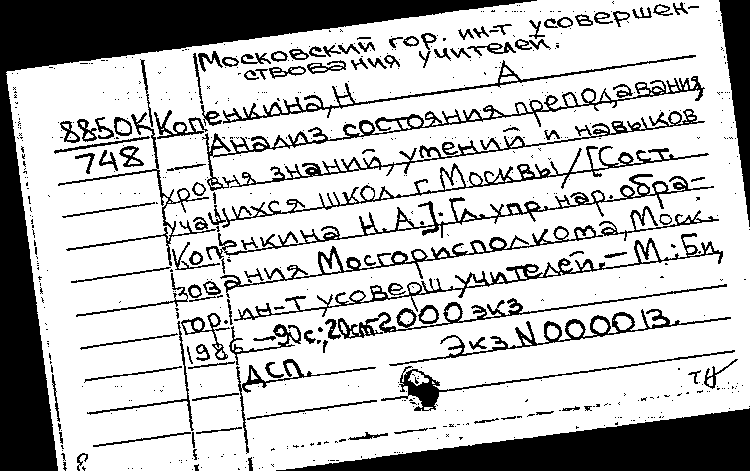 Московский гор. ин-т усовершен-
ствования учителей.
8850К Копенкина, Н А
748 Анализ состояния преподавания,
уровня знаний, умений и навыков
учащихся школ. г. Москвы / [Сост.
Копенкина Н. А.]; Гл. упр. нар. обра-
зования Мосгорисполкома, Моск.
гор. ин-т усоверш. учителей. — М.: Би,
1986. — 90 с.; 20 см. 2000 экз
ДСП. Экз. N 000013.
8